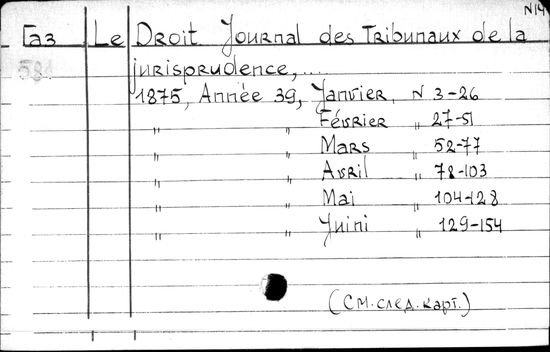 N14
Газ Le Droit Journal des Tribunaux de la
581 jurisprudence,...
1875, Année 39, Janvier, N 3-26
" " Février " 27-51
" " Mars " 52-77
" " Avril " 78-103
" " Mai " 104-128
" " Juini " 129-154
(См. след. карт.)